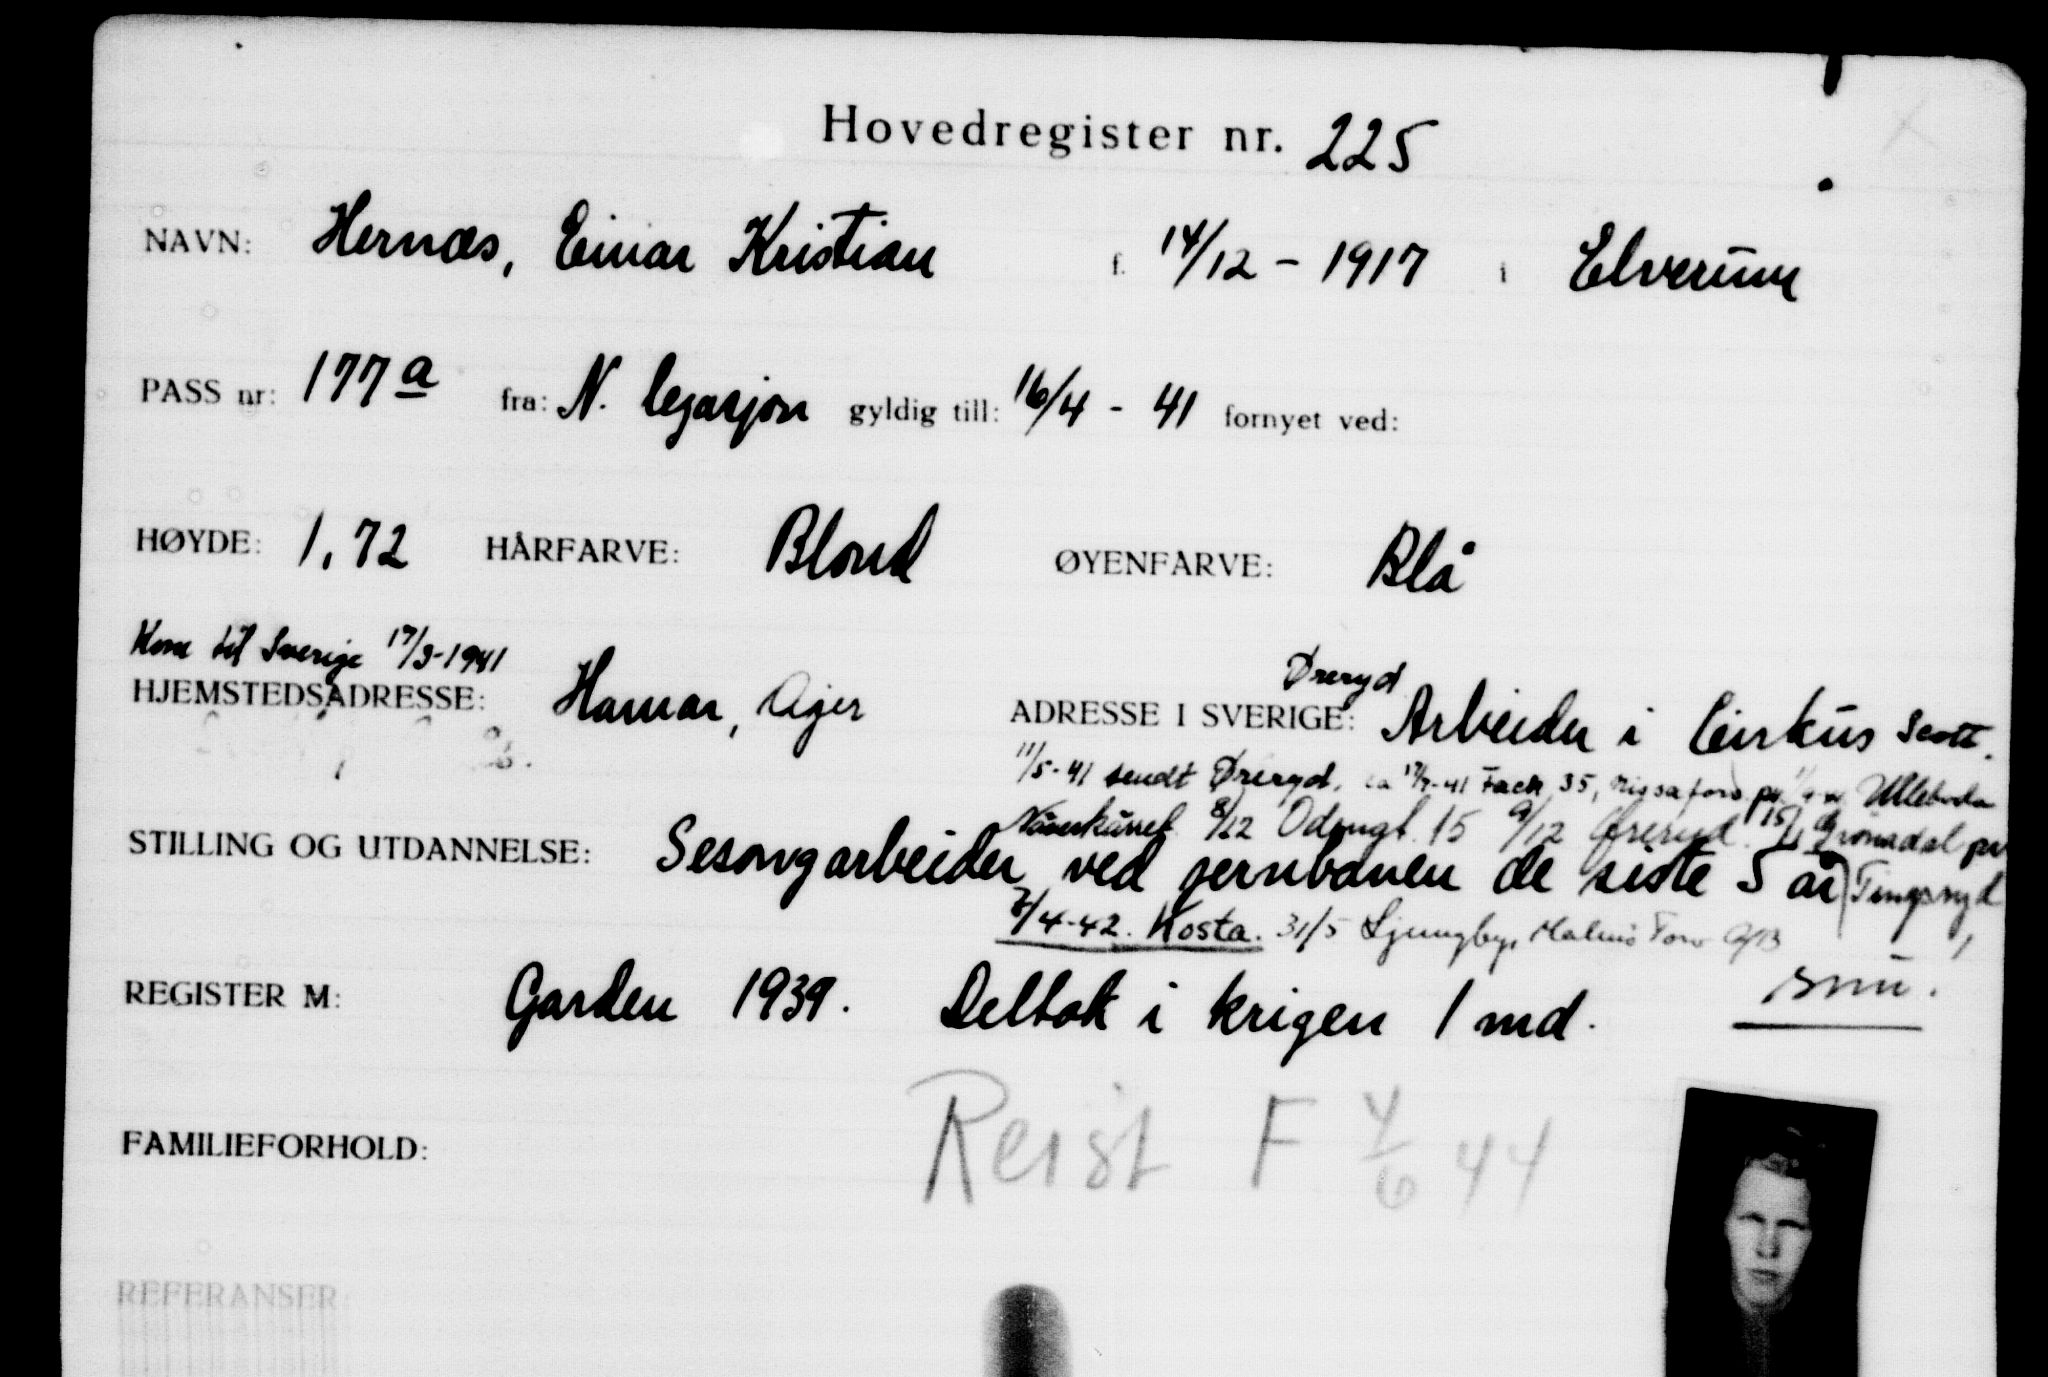 Hovedregister nr. 225
NAVN: Hernæs, Einar Kristian f. 14/12 - 1917 i Elverum
PASS nr: 177 a fra: N. legasjon gyldig till: 16/4 - 41 fornyet ved:
HØYDE: 1,72 HÅRFARVE: Blond ØYENFARVE: Blå
Kom til Sverige 17/3-1941
Øreryd
HJEMSTEDSADRESSE: Hamar, Ajer ADRESSE I SVERIGE: Arbeider i Cirkus Scott.
11/5-41 sendt Øreryd, ca 17/7-41 Fack 35, Nissafors. pr Ulleboda
8/12 Odengt. 15 9/12 Øreryd 15/1 Grönadal pr
STILLING OG UTDANNELSE: Sesongarbeider ved jernbanen de siste 5 år Tingsryd
7/4-42. Kosta. 31/5 Ljungby, Malmö
REGISTER M: Garden 1939. Deltok i krigen 1 md. snu.
FAMILIEFORHOLD: Reist F 4/6 44
REFERANSER: